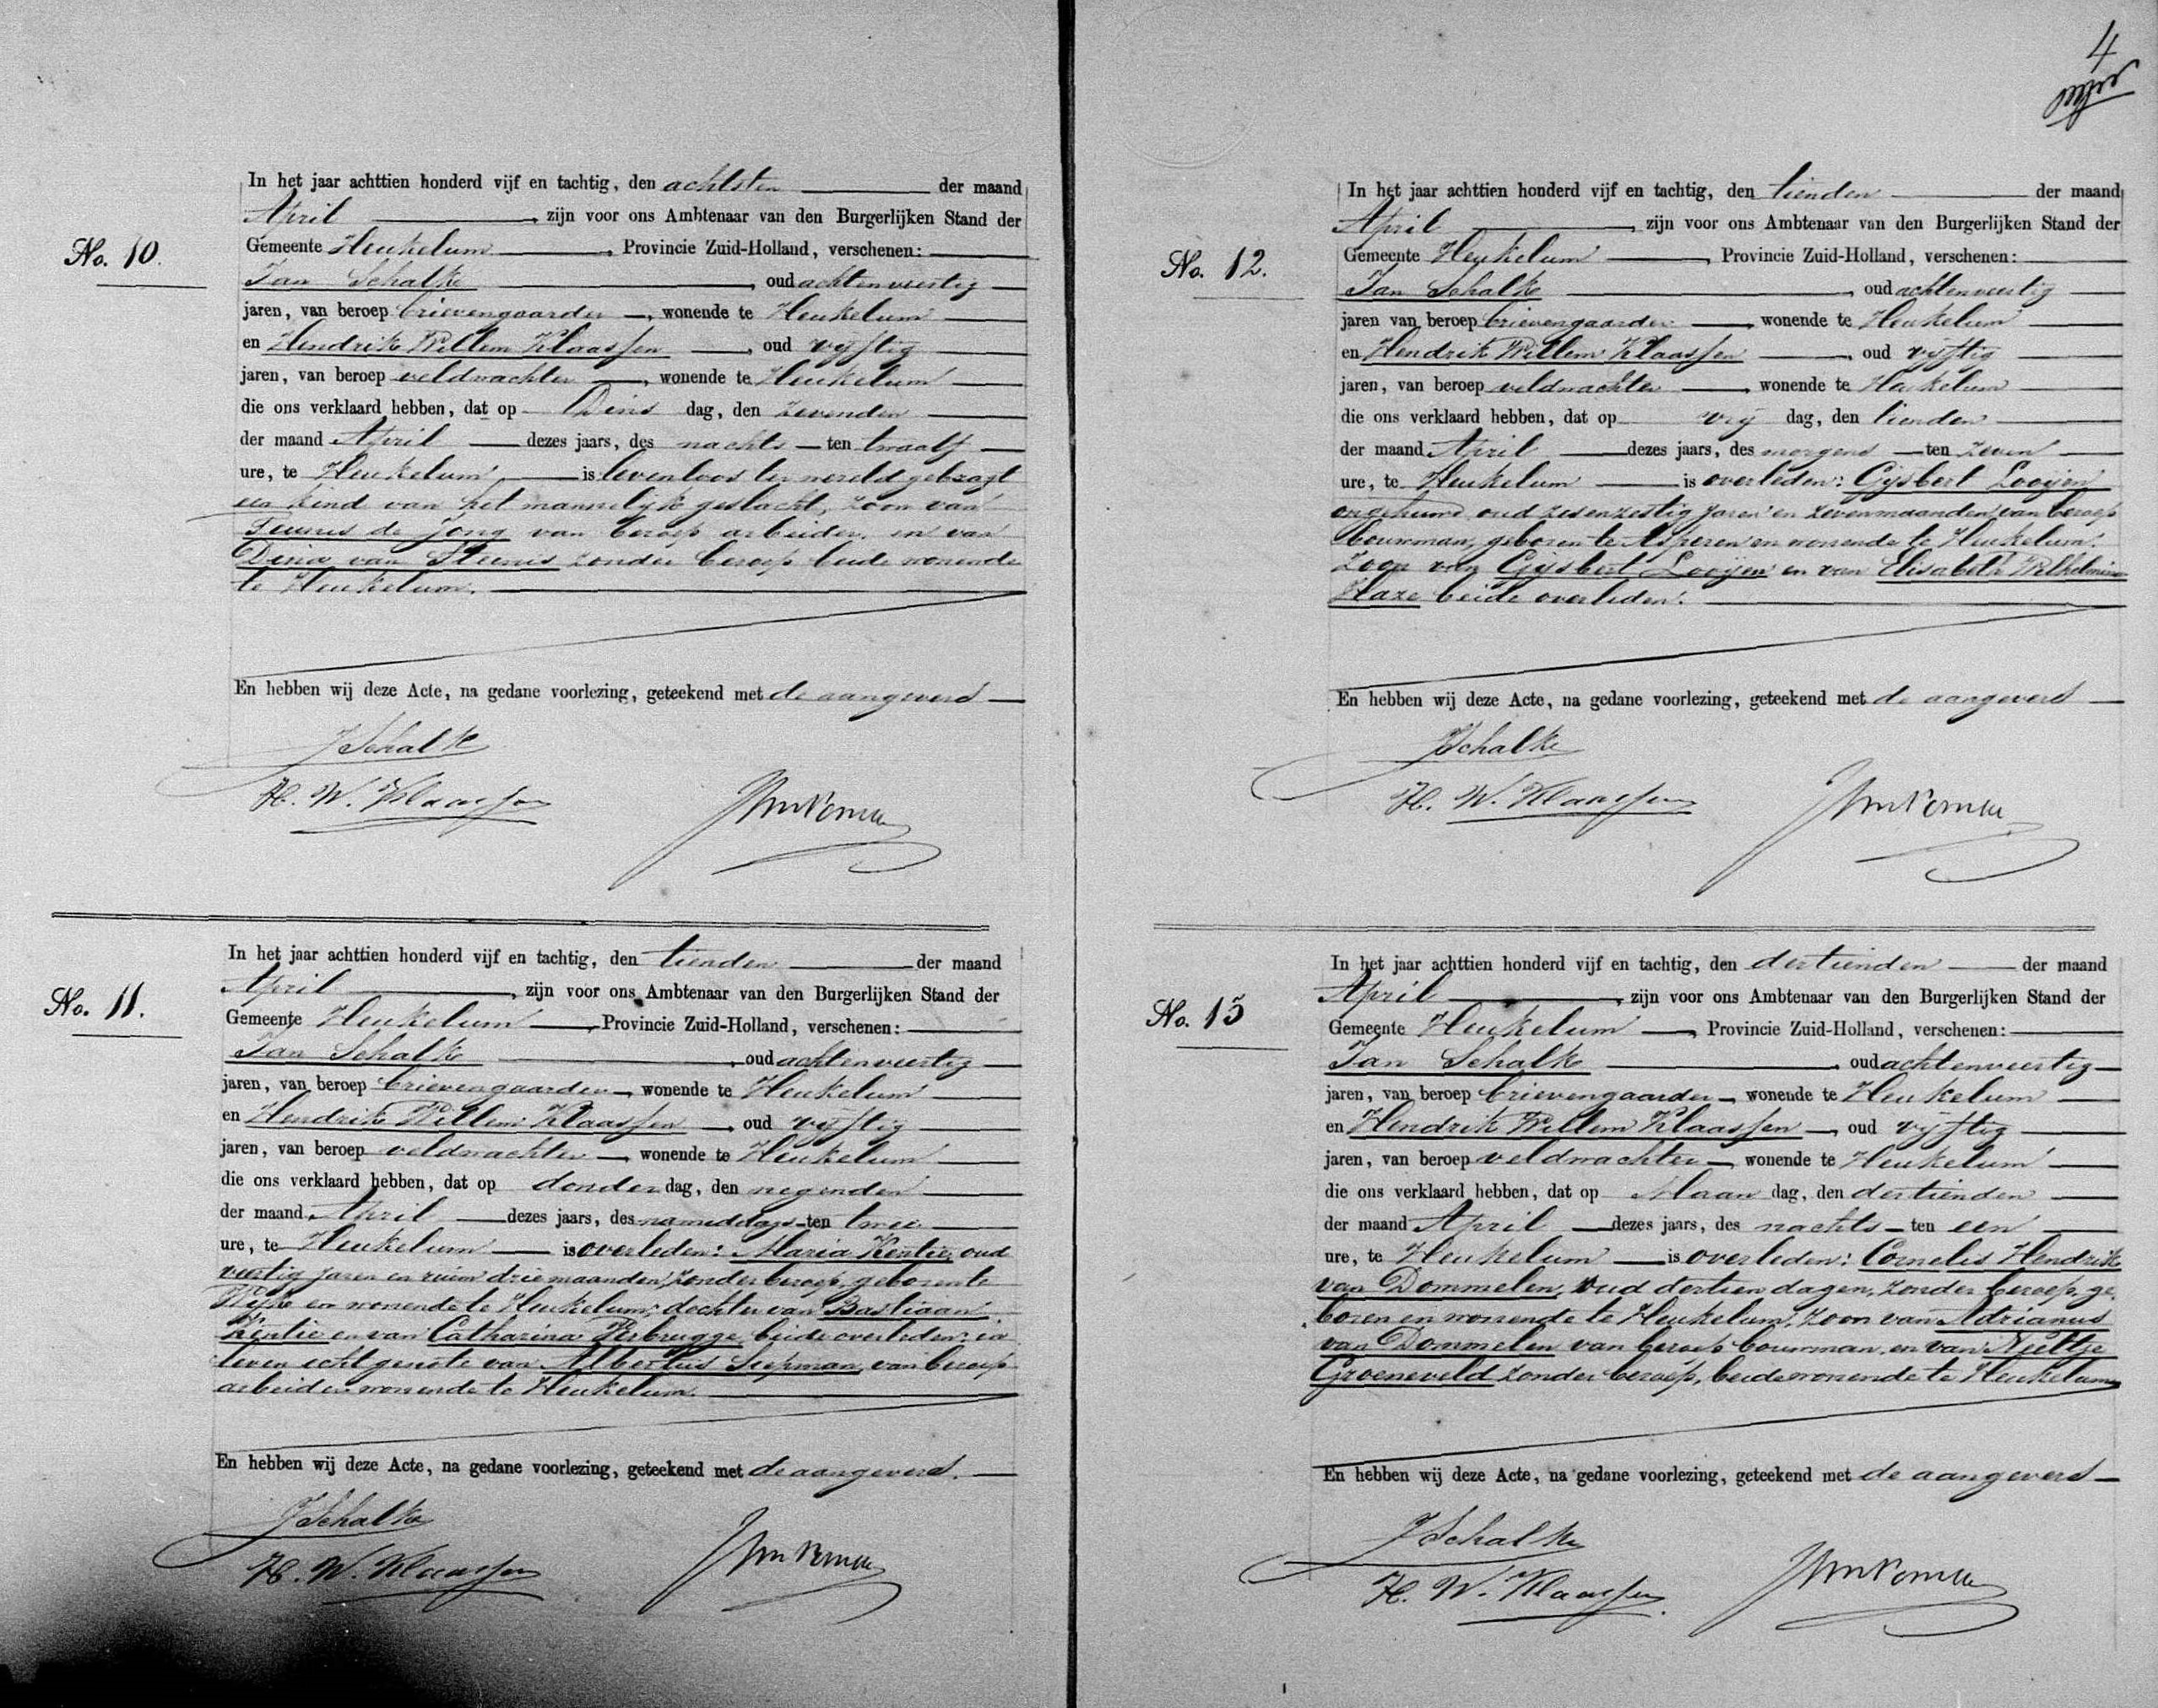 4
No. 10.
In het jaar achttien honderd vijf en tachtig, den achtsten der maand
April, zijn voor ons Ambtenaar van den Burgerlijken Stand der
Gemeente Heukelum, Provincie Zuid-Holland, verschenen:
Jan Schalk, oud achtenveertig
jaren, van beroep brievengaarder, wonende te Heukelum
en Hendrik Willem Klaassen, oud vijftig
jaren, van beroep veldwachter, wonende te Heukelum
die ons verklaard hebben, dat op Dins dag, den zevenden
der maand April dezes jaars, des nachts ten twaalf
ure, te Heukelum is levenloos ter wereld gebragt
een kind van het mannelijk geslacht, zoon van
Teunis de Jong van beroep arbeider, en van
Dina van zonder beroep beide wonende
te Heukelum.
En hebben wij deze Acte, na gedane voorlezing, geteekend met de aangevers
J Schalk
H. W. Klaassen
No. 11.
In het jaar achttien honderd vijf en tachtig, den tienden der maand
April, zijn voor ons Ambtenaar van den Burgerlijken Stand der
Gemeente Heukelum, Provincie Zuid-Holland, verschenen:
Jan Schalk, oud achtenveertig
jaren, van beroep brievengaarder, wonende te Heukelum
en Hendrik Willem Klaassen, oud vijftig
jaren, van beroep veldwachter, wonende te Heukelum
die ons verklaard hebben, dat op donder dag, den negenden
der maand April dezes jaars, des namiddags ten twee
ure, te Heukelum is overleden: Maria Kentie, oud
veertig jaren en ruim drie maanden, zonder beroep, geboren te
en wonende te Heukelum, dochter van Bastiaan
Kentie en van Catharina Verbrugge, beide overleden: in
leven echtgenote van Albertus Siepman, van beroep
arbeider wonende te Heukelum.
En hebben wij deze Acte, na gedane voorlezing, geteekend met de aangevers.
J Schalk
H. W. Klaassen
No. 12.
In het jaar achttien honderd vijf en tachtig, den tienden der maand
April, zijn voor ons Ambtenaar van den Burgerlijken Stand der
Gemeente Heukelum, Provincie Zuid-Holland, verschenen:
Jan Schalk, oud achtenveertig
jaren van beroep brievengaarder, wonende te Heukelum
en Hendrik Willem Klaassen, oud vijftig
jaren, van beroep veldwachter, wonende te Heukelum
die ons verklaard hebben, dat op vrij dag, den tienden
der maand April dezes jaars, des morgens ten zeven
ure, te Heukelum is overleden: Gijsbert Looijen
ongehuwd, oud zesenzestig jaren en zeven maanden, van beroep
bouwman, geboren te Asperen en wonende te Heukelum.
Zoon van Gijsbert Looijen en van Elisabeth Wilhelmina
Haze beide overleden.
En hebben wij deze Acte, na gedane voorlezing, geteekend met de aangevers
J Schalk
H. W. Klaassen
No. 13
In het jaar achttien honderd vijf en tachtig, den dertienden der maand
April, zijn voor ons Ambtenaar van den Burgerlijken Stand der
Gemeente Heukelum, Provincie Zuid-Holland, verschenen:
Jan Schalk, oud achtenveertig
jaren, van beroep brievengaarder, wonende te Heukelum
en Hendrik Willem Klaassen, oud vijftig
jaren, van beroep veldwachter, wonende te Heukelum
die ons verklaard hebben, dat op Maan dag, den dertienden
der maand April dezes jaars, des nachts ten een
ure, te Heukelum is overleden: Cornelis Hendrik
van Dommelen, oud dertien dagen, zonder beroep, ge
boren en wonende te Heukelum, zoon van Adrianus
van Dommelen van beroep bouwman, en van Neeltje
Groeneveld zonder beroep, beide wonende te Heukelum
En hebben wij deze Acte, na gedane voorlezing, geteekend met de aangevers
J Schalk
H. W. Klaassen